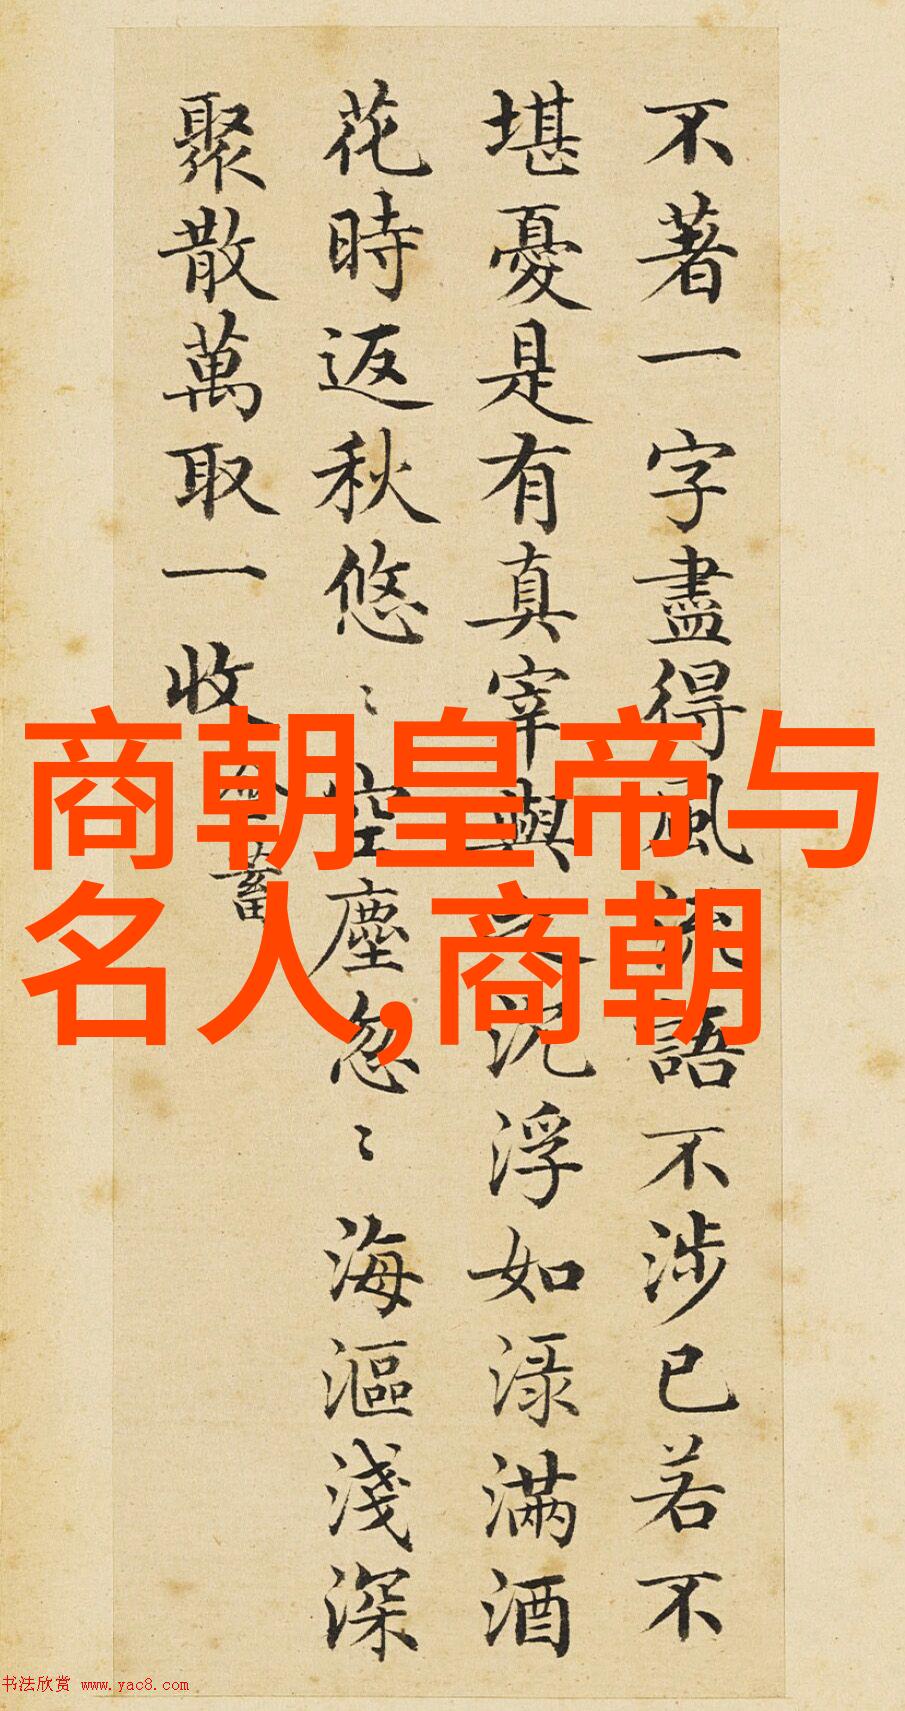 不著一字盡得風流語不涉已若不
堪憂是有真宰與之沈浮如渌滿酒
花時返秋悠〻空塵忽〻海漚淺深
聚散萬取一收
含蓄
商朝皇帝与
名人,商朝
书法欣赏 www.yac8.com